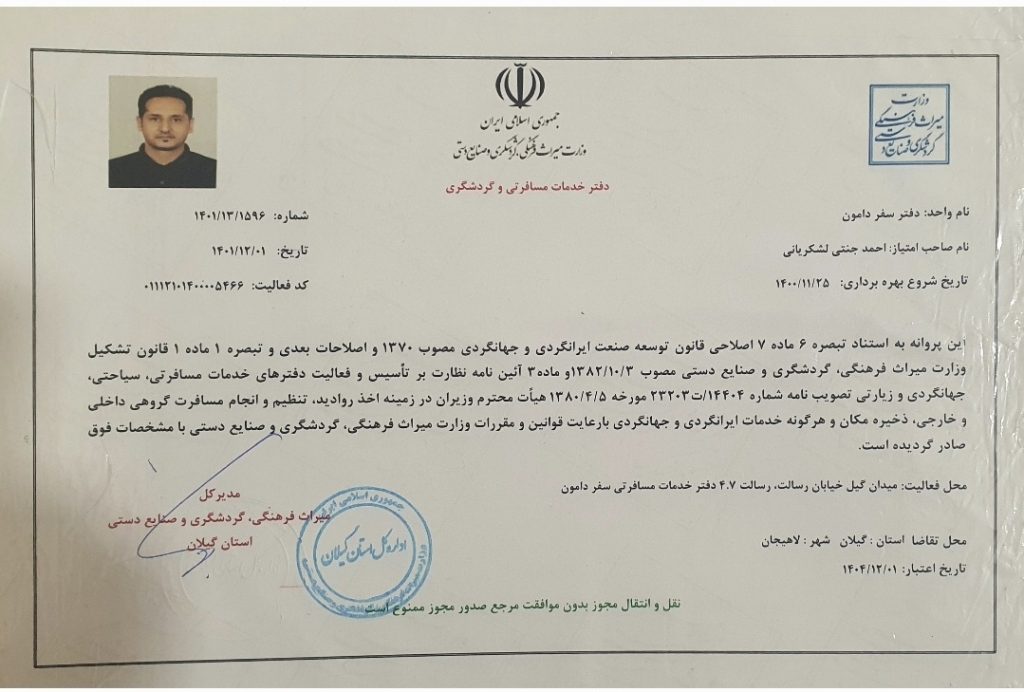 جمهوری اسلامی ایران
وزارت میراث فرهنگی، گردشگری و صنایع دستی
وزارت
میراث فرهنگی
گردشگری و صنایع د
دفتر خدمات مسافرتی و گردشگری
نام واحد: دفتر سفر دامون
شماره: ۱۴۰۱/۱۳/۱۵۹۶
نام صاحب امتیاز: احمد جنتی لشکریانی
تاریخ: ۱۴۰۱/۱۲/۰۱
تاریخ شروع بهره برداری: ۱۴۰۰/۱۱/۲۵
کد فعالیت: ۰۱۱۱۲۱۰۱۴۰۰۰۰۵۴۶۶
این پروانه به استناد تبصره ۶ ماده ۷ اصلاحی قانون توسعه صنعت ایرانگردی و جهانگردی مصوب ۱۳۷۰ و اصلاحات بعدی و تبصره ۱ ماده ۱ قانون تشکیل
وزارت میراث فرهنگی، گردشگری و صنایع دستی مصوب ۱۳۸۲/۱۰/۳و ماده۳ آئین نامه نظارت بر تأسیس و فعالیت دفترهای خدمات مسافرتی، سیاحتی،
جهانگردی و زیارتی تصویب نامه شماره ۱۴۴۰۴/ت۲۳۲۰۳ مورخه ۱۳۸۰/۴/۵ هیأت محترم وزیران در زمینه اخذ روادید، تنظیم و انجام مسافرت گروهی داخلی
و خارجی، ذخیره مکان و هرگونه خدمات ایرانگردی و جهانگردی بارعایت قوانین و مقررات وزارت میراث فرهنگی، گردشگری و صنایع دستی با مشخصات فوق
صادر گردیده است.
محل فعالیت: میدان گیل خیابان رسالت، رسالت ۴.۷ دفتر خدمات مسافرتی سفر دامون
مدیرکل
میراث فرهنگی، گردشگری و صنایع دستی
استان گیلان
جمهوری اسلامی ایران
اداره کل استان گیلان
محل تقاضا استان : گیلان شهر : لاهیجان
تاریخ اعتبار: ۱۴۰۴/۱۲/۰۱
نقل و انتقال مجوز بدون موافقت مرجع صدور مجوز ممنوع است